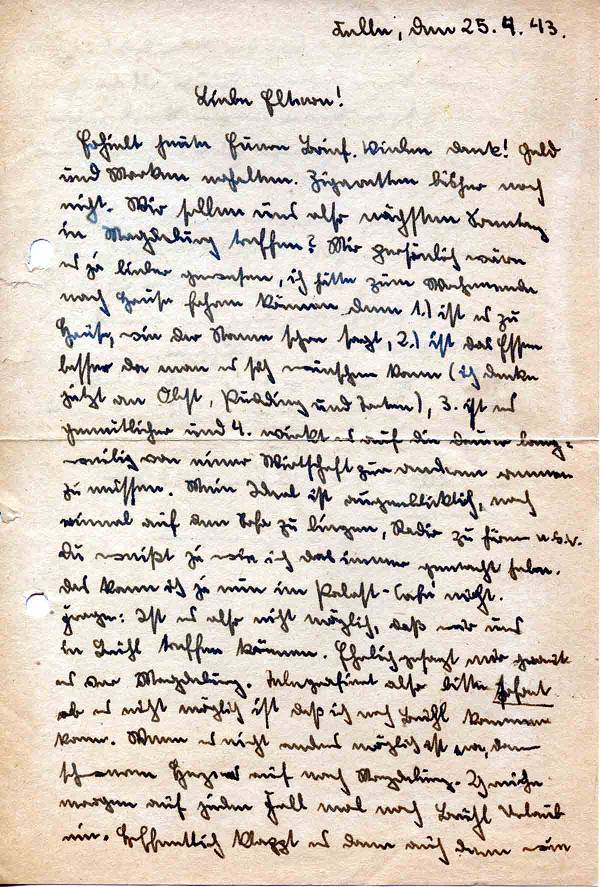 Celle, den 25.4.43.
Liebe Eltern!
Erhielt heute Euren Brief. Vielen Dank! Geld
und Marken erhalten. Zigaretten bisher noch
nicht. Wir sollen uns also nächsten Sonntag
in Magdeburg treffen? Mir persönlich wäre
es ja lieber gewesen, ich hätte zum Wochenende
nach Hause fahren können denn 1.) ist es zu
Hause, wie der Name schon sagt, 2.) ist das Essen
besser da man es sich wünschen kann (ich denke
jetzt an Obst, Pudding und Torten), 3. ist es
gemütlicher und 4. wirkt es auf die Dauer lang-
weilig von einer Wirtschaft zur anderen rennen
zu müssen. Mein Ideal ist augenblicklich, noch
einmal auf dem Sofa zu liegen, Radio zu hören u.s.w.
Du weißt ja wie ich das immer gemacht habe.
Das kann ich ja nun im Palast-Café nicht.
Frage: Ist es also nicht möglich, daß wir uns
in Brühl treffen können. Ehrlich gesagt mir graut
es vor Magdeburg. Telegrafiert also bitte sofort
ob es nicht möglich ist daß ich nach Brühl kommen
kann. Wenn es nicht anders möglich ist, na, dann
schweren Herzens auf nach Magdeburg. Ich reiche
morgen auf jeden Fall mal nach Brühl Urlaub
ein. Hoffentlich klappt es dann auch denn wie